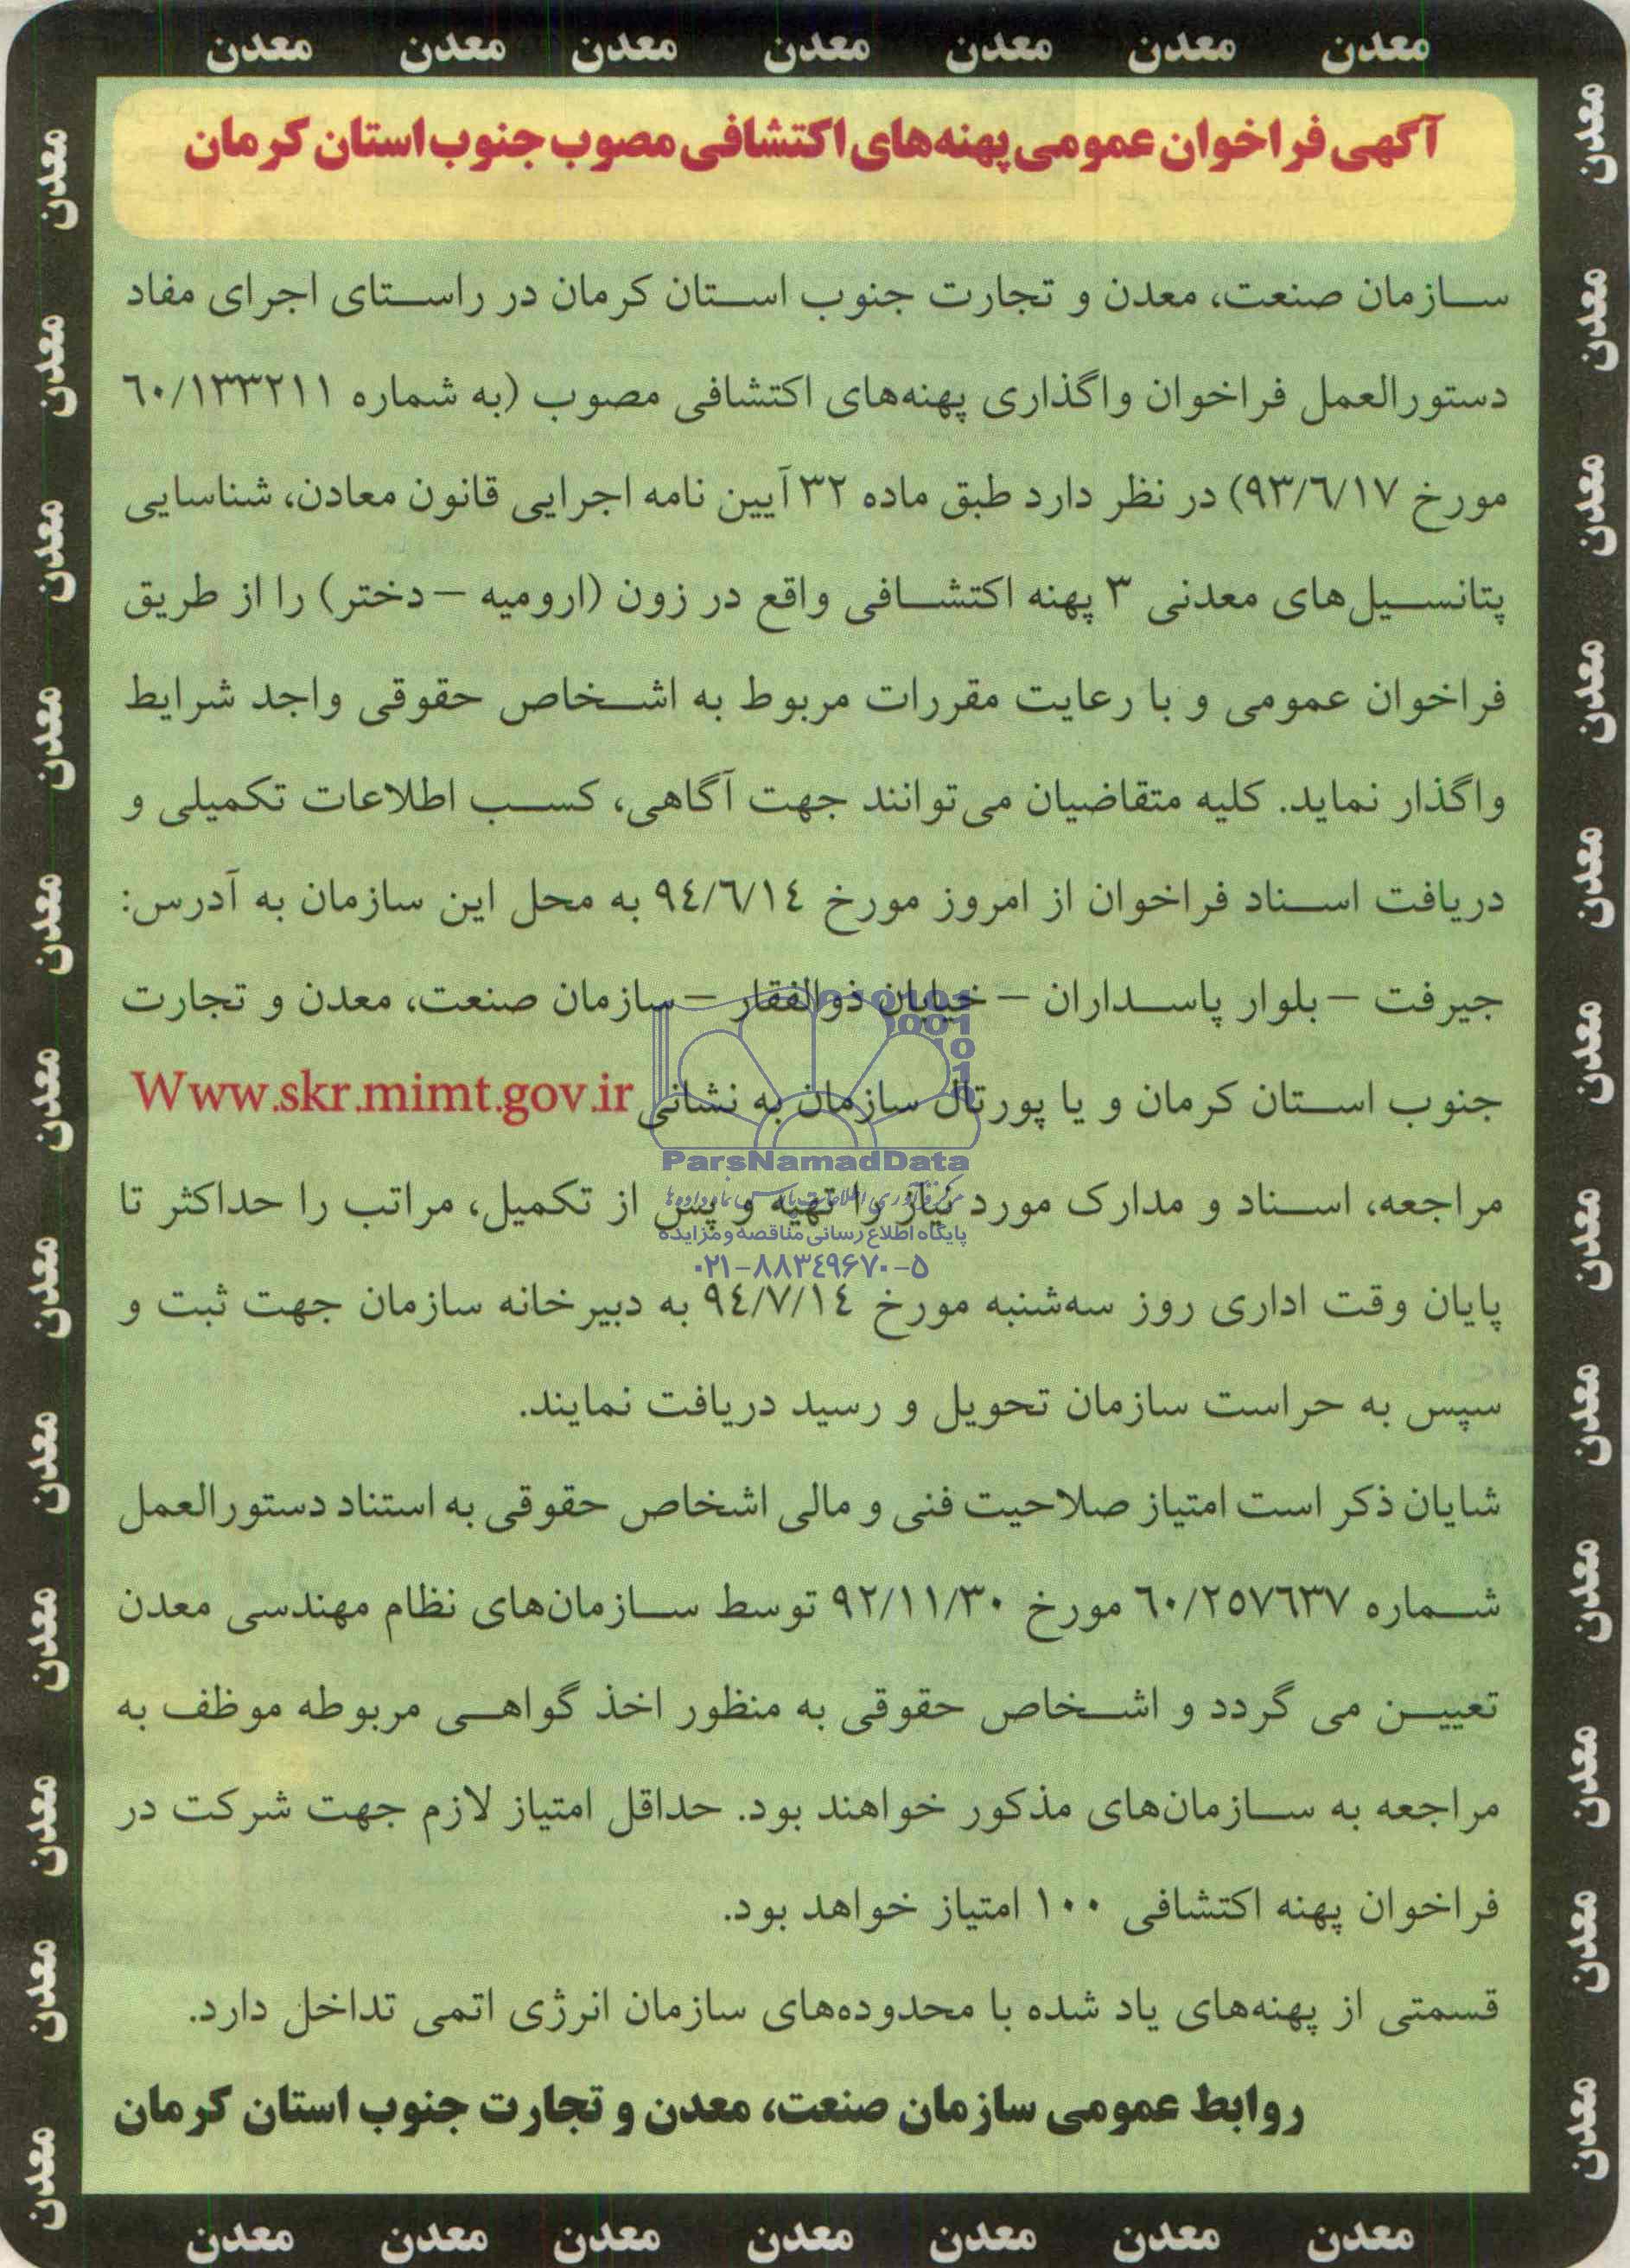 معدن معدن معدن معدن معدن معدن معدن
آگهی فراخوان عمومی پهنه‌های اکتشافی مصوب جنوب استان کرمان
سازمان صنعت، معدن و تجارت جنوب استان کرمان در راستای اجرای مفاد
دستورالعمل فراخوان واگذاری پهنه‌های اکتشافی مصوب (به شماره ۶۰/۱۳۳۲۱۱
مورخ ۹۳/۶/۱۷) در نظر دارد طبق ماده ۳۲ آیین نامه اجرایی قانون معادن، شناسایی
پتانسیل‌های معدنی ۳ پهنه اکتشافی واقع در زون (ارومیه – دختر) را از طریق
فراخوان عمومی و با رعایت مقررات مربوط به اشخاص حقوقی واجد شرایط
واگذار نماید. کلیه متقاضیان می‌توانند جهت آگاهی، کسب اطلاعات تکمیلی و
دریافت اسناد فراخوان از امروز مورخ ۹٤/۶/۱٤ به محل این سازمان به آدرس:
جیرفت – بلوار پاسداران – خیابان ذوالفقار – سازمان صنعت، معدن و تجارت
جنوب استان کرمان و یا پورتال سازمان به نشانی Www.skr.mimt.gov.ir
مراجعه، اسناد و مدارک مورد نیاز را تهیه و پس از تکمیل، مراتب را حداکثر تا
پایان وقت اداری روز سه‌شنبه مورخ ۹٤/۷/۱٤ به دبیرخانه سازمان جهت ثبت و
سپس به حراست سازمان تحویل و رسید دریافت نمایند.
شایان ذکر است امتیاز صلاحیت فنی و مالی اشخاص حقوقی به استناد دستورالعمل
شماره ۶۰/۲۵۷۶۳۷ مورخ ۹۲/۱۱/۳۰ توسط سازمان‌های نظام مهندسی معدن
تعیین می گردد و اشخاص حقوقی به منظور اخذ گواهی مربوطه موظف به
مراجعه به سازمان‌های مذکور خواهند بود. حداقل امتیاز لازم جهت شرکت در
فراخوان پهنه اکتشافی ۱۰۰ امتیاز خواهد بود.
قسمتی از پهنه‌های یاد شده با محدوده‌های سازمان انرژی اتمی تداخل دارد.
روابط عمومی سازمان صنعت، معدن و تجارت جنوب استان کرمان
معدن معدن معدن معدن معدن معدن معدن
ParsNamadData
مرکز فرآوری اطلاعات پارس نماد داده‌ها
پایگاه اطلاع رسانی مناقصه و مزایده
۰۲۱-۸۸۳٤۹۶۷۰-۵